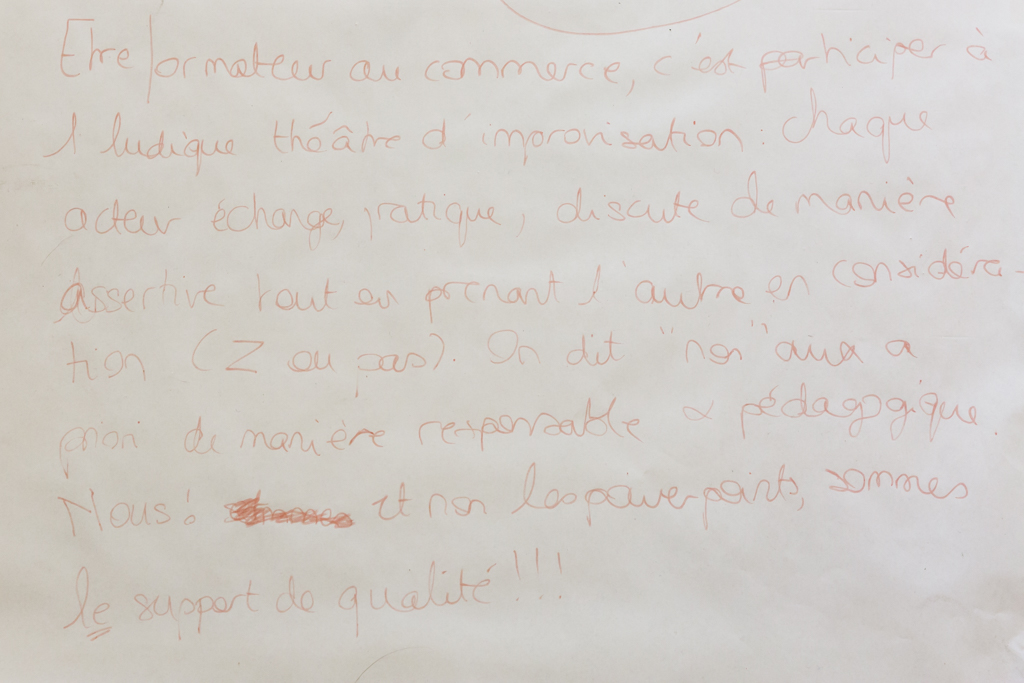 Etre formateur au commerce, c'est participer à
l ludique théâtre d'improvisation : chaque
acteur échange, pratique, discute de manière
assertive tout en prenant l'autre en considéra-
tion (Z ou pas). On dit "non" aux a
priori de manière responsable & pédagogique.
Nous ! et non les powerpoints, sommes
le support de qualité !!!